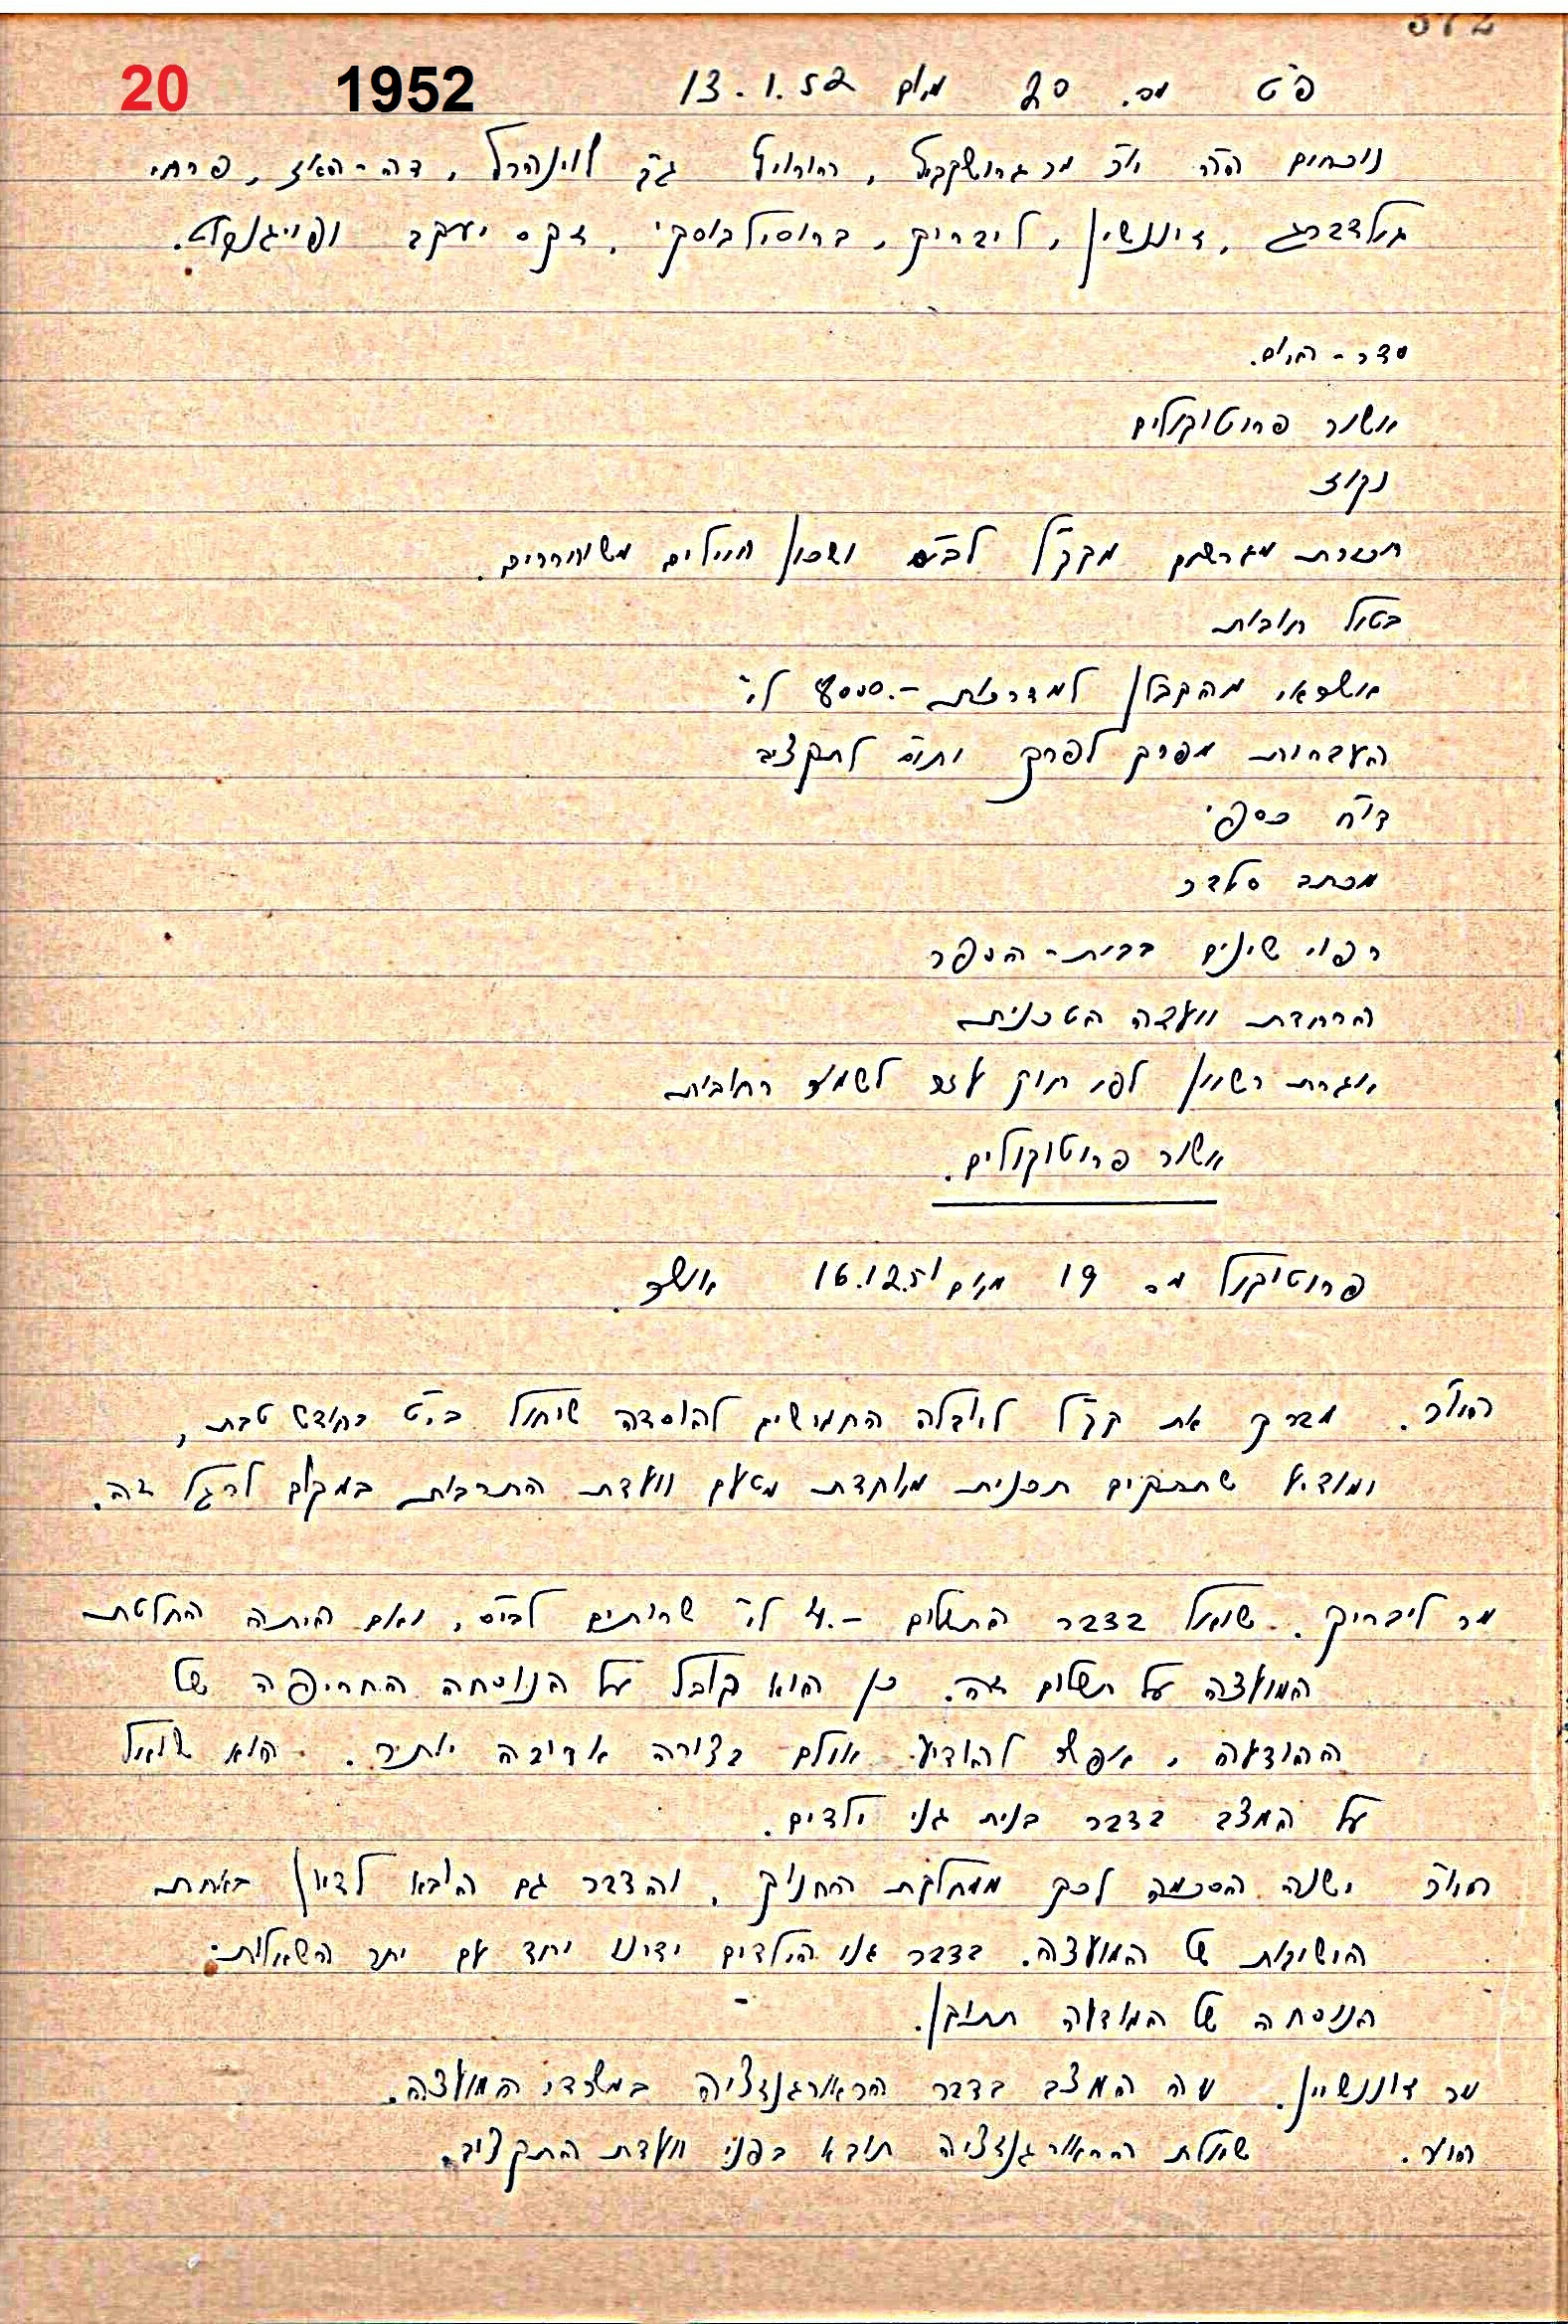 372
20 1952
פ"ט מס. 20 מיום 13.1.52
נוכחים ה"ה יו"ר מר גרושקביץ, הורוויץ, גב' לוינהרץ, דה-האז, פרחי
גולדברג, זיננשיין, ליבריק, ברוסילובסקי, זקס יעקב ופייגנבלט.
סדר-היום.
אשור פרוטוקולים
נקוז
חכירת מגרשים מקק"ל לבי"ס ושכון חיילים משוחררים.
בטול חובות
אשראי מהקבלן למדרכות -.8000 ל"י
העברות מפרק לפרק ותוס' לתקציב
דו"ח כספי
מכתב סולדר
רפוי שינים בבית-הספר
הרחבת וועדה הטכנית
אגרת רשיון לפי חוק עזר לשמור רחובות
אשור פרוטוקולים.
פרוטוקול מס 19 מיום 16.12.51 אושר.
היו"ר. מברך את קק"ל ליובלה החמישים להוסדה שיחול בי"ט בחודש טבת,
ומודיע שתתקיים תכנית מאוחדת מטעם וועדת התרבות במקום לרגל זה.
מר ליבריק. שואל בדבר התשלום -.4 ל"י שרותים לבי"ס, ואם היתה החלטת
המועצה על תשלום זה. כן הוא קובל על הנוסחה החריפה של
ההודעה, אפשר להודיע אולם בצורה אדיבה יותר. הוא שואל
על המצב בדבר בנית גני ילדים.
היו"ר ישנה הסכמה לכך ממחלקת החנוך, והדבר גם הובא לדיון באחת
הישיבות של המועצה. בדבר גני הילדים ידונו יחד עם יתר השאלות.
הנוסחה של המודעה תתוקן.
מר זוננשיין. מה המצב בדבר הראורגנזציה במשרדי המועצה.
היו"ר. שאלת הראורגנזציה תובא בפני וועדת התקציב.